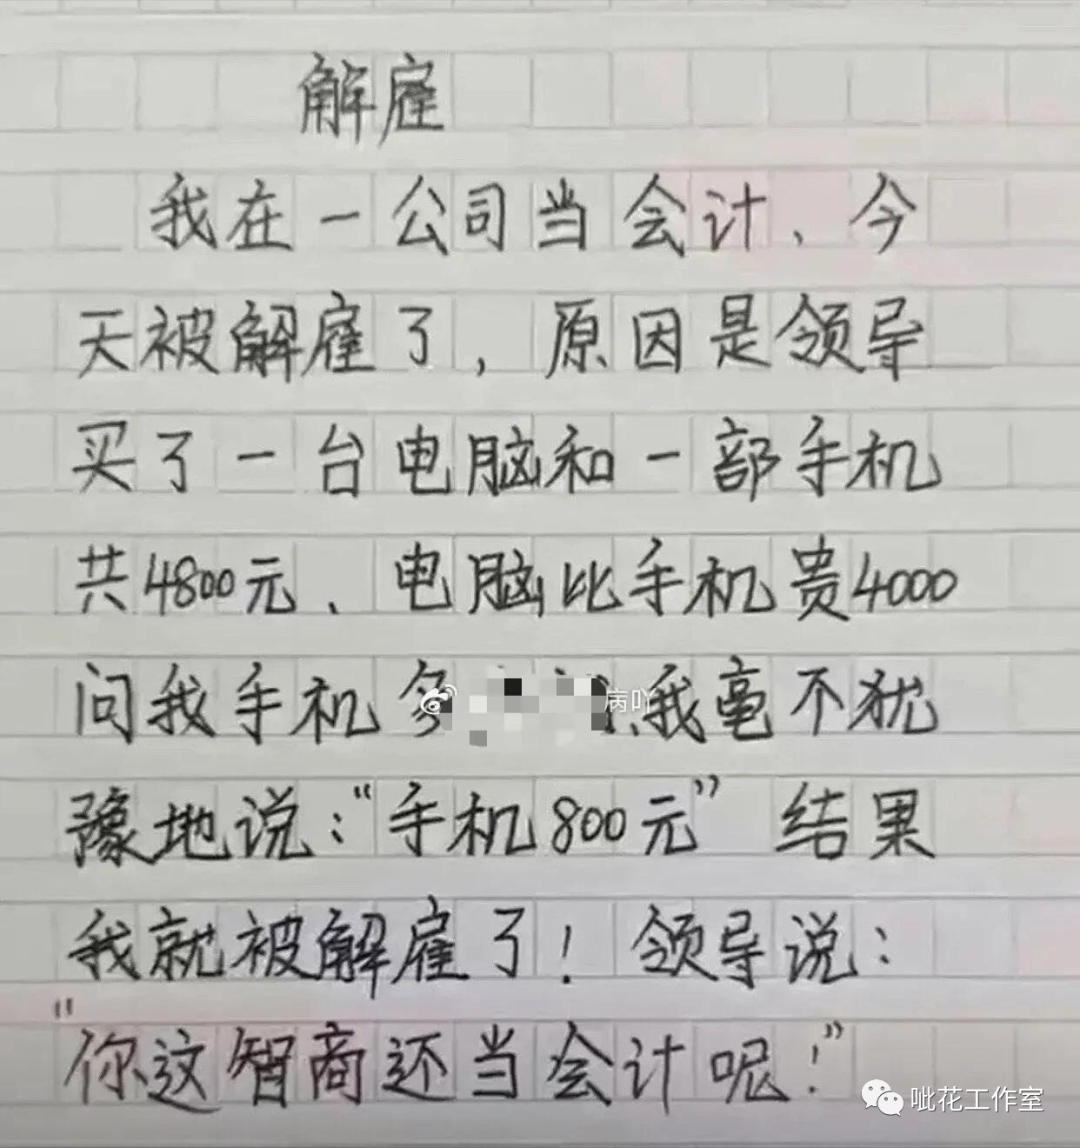 解雇
我在一公司当会计、今
天被解雇了，原因是领导
买了一台电脑和一部手机
共4800元、电脑比手机贵4000
问我手机多 病吖 我毫不犹
豫地说："手机800元" 结果
我就被解雇了！领导说：
"你这智商还当会计呢！"
呲花工作室